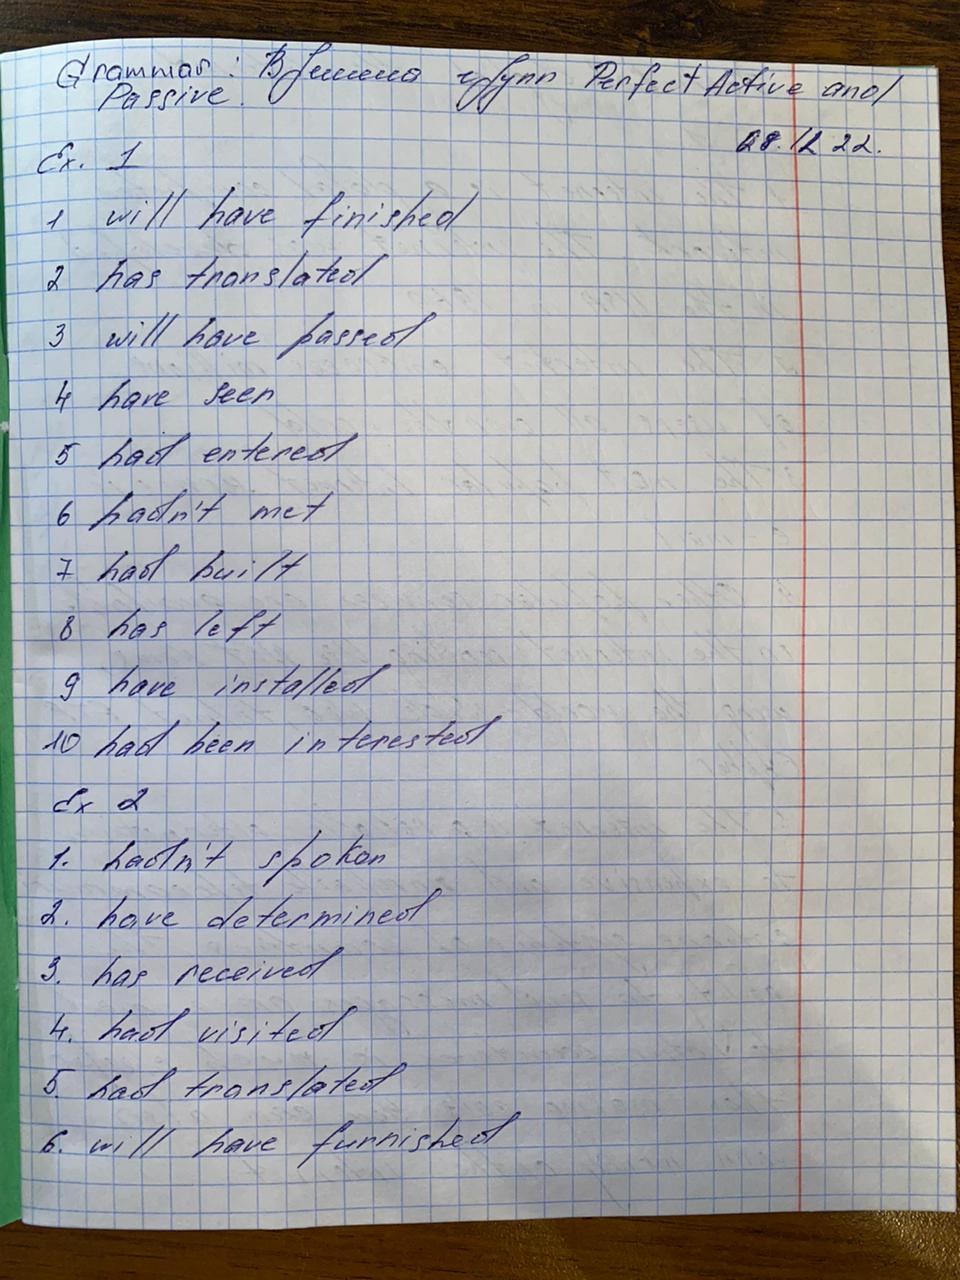 Grammar: Времена групп Perfect Active and
Passive.
28.12 22.
Ex. 1
1 will have finished
2 has translated
3 will have passed
4 have seen
5 had entered
6 hadn't met
7 had built
8 has left
9 have installed
10 had been interested
Ex 2
1. hadn't spoken
2. have determined
3. has received
4. had visited
5. had translated
6. will have furnished